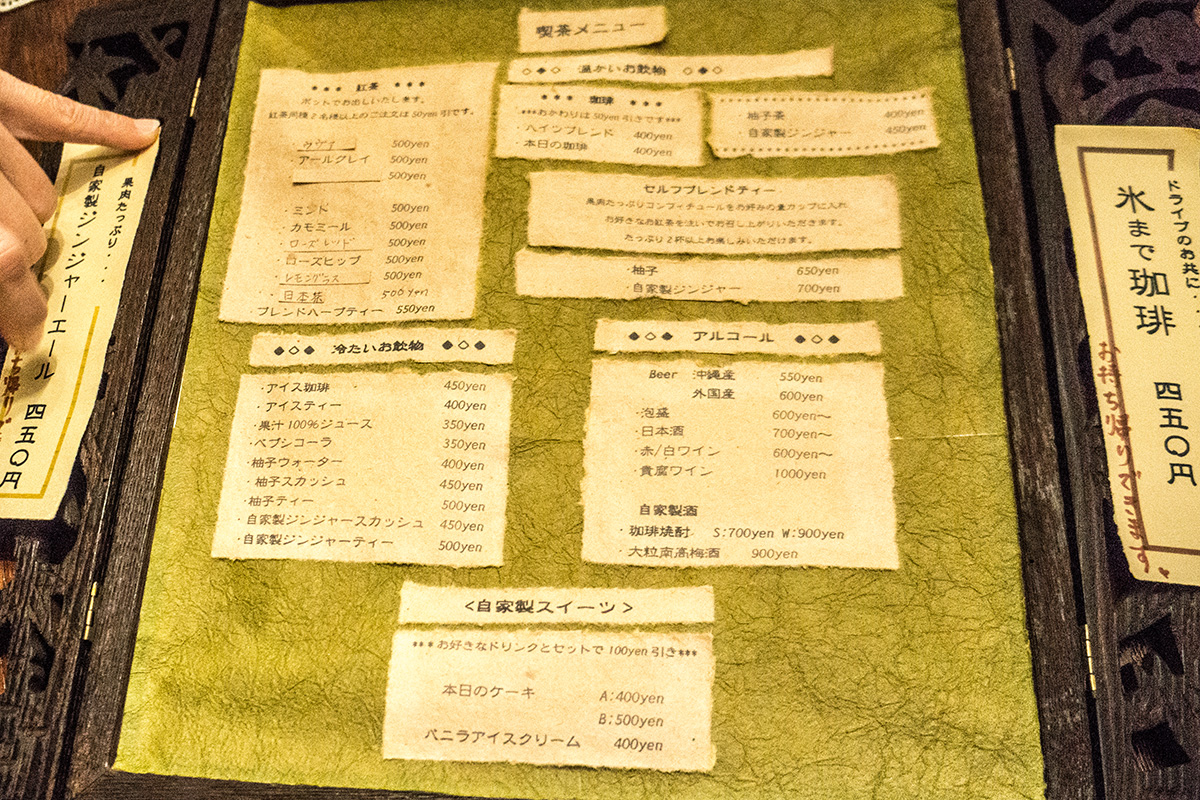 喫茶メニュー
◇◆◇ 温かいお飲物 ◇◆◇
*** 紅茶 ***
ポットでお出しいたします。
紅茶同種2名様以上のご注文は50yen引です。
・ウヴァ 500yen
・アールグレイ 500yen
500yen
・ミント 500yen
・カモミール 500yen
・ローズレッド 500yen
・ローズヒップ 500yen
・レモングラス 500yen
・日本茶 500yen
・ブレンドハーブティー 550yen
*** 珈琲 ***
***おかわりは50yen引きです***
・ハイツブレンド 400yen
・本日の珈琲 400yen
・柚子茶 400yen
・自家製ジンジャー 450yen
セルフブレンドティー
果肉たっぷりコンフィチュールをお好みの量カップに入れ
お好きなお紅茶を注いでお召し上がりいただきます。
たっぷり2杯以上お楽しみいただけます。
・柚子 650yen
・自家製ジンジャー 700yen
◆◇◆ 冷たいお飲物 ◆◇◆
・アイス珈琲 450yen
・アイスティー 400yen
・果汁100%ジュース 350yen
・ペプシコーラ 350yen
・柚子ウォーター 400yen
・柚子スカッシュ 450yen
・柚子ティー 500yen
・自家製ジンジャースカッシュ 450yen
・自家製ジンジャーティー 500yen
◆◇◆ アルコール ◆◇◆
Beer 沖縄産 550yen
外国産 600yen
・泡盛 600yen〜
・日本酒 700yen〜
・赤/白ワイン 600yen〜
・貴腐ワイン 1000yen
自家製酒
・珈琲焼酎 S:700yen W:900yen
・大粒南高梅酒 900yen
<自家製スイーツ>
***お好きなドリンクとセットで100yen引き***
本日のケーキ A:400yen
B:500yen
バニラアイスクリーム 400yen
果肉たっぷり・・・
自家製ジンジャーエール 四五〇円
ち帰りで
ドライブのお共に
氷まで珈琲 四五〇円
お持ち帰りできます♥